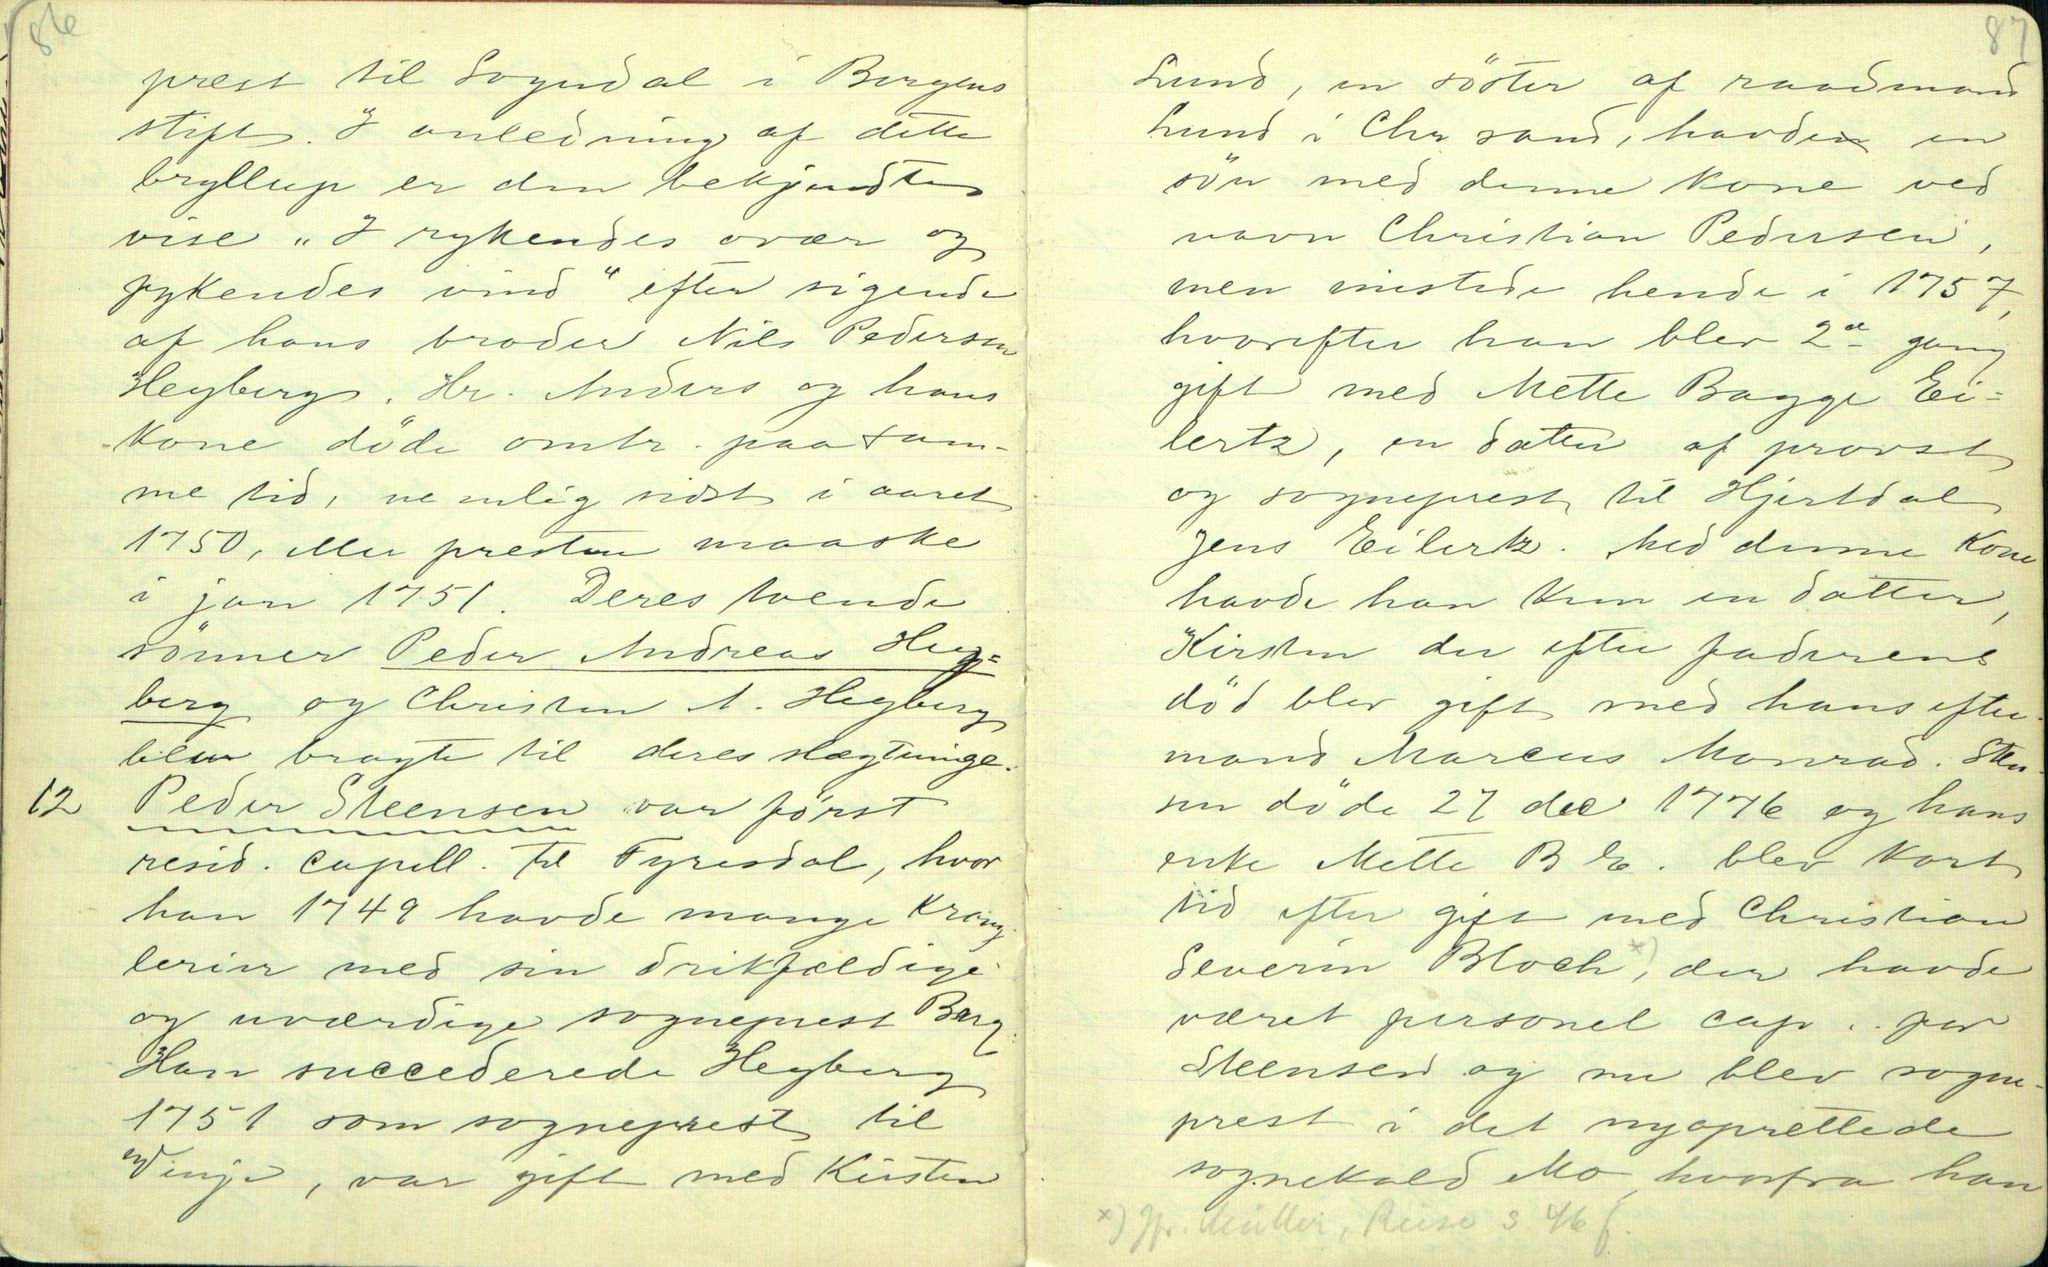 86
prest til Sogndal i Bergens
stift. I anledning af dette
bryllup er den bekjendte
vise „I rykendes ovær og
fykendes vind“ efter sigende
af hans broder Nils Pedersen
Heyberg. Hr. Anders og hans
kone døde omtr. paa sam-
me tid, nemlig sidst i aaret
1750, eller presten maaske
i jan 1751. Deres tvende
sönner Peder Andreas Hey=
berg og Christen A. Heyberg
blev bragte til deres slægtninge.
12 Peder Steensen var først
resid. capell. til Fyresdal, hvor
han 1749 havde mange krang-
lerier med sin drikfældige
og uværdige sogneprest Barg.
Han succederede Heyberg
1751 som sogneprest til
Vinje, var gift med Kirsten
87
Lund, en söster af raadmand
Lund i Chr sand, havde en
sön med denne kone ved
navn Christian Pedersen,
men mistede hende i 1757,
hvorefter han blev 2d gang
gift med Mette Bagge Ei=
lertz, en datter af provst
og sogneprest til Hjertdal
Jens Eilertz. Med denne kone
havde han kun en datter,
Kirsten der efter faderens
död blev gift med hans efter-
mand Marcus Monrad. Steen-
sen döde 27 dec 1776 og hans
enke Mette B E. blev kort
tid efter gift med Christian
Severin Bloch*), der havde
været personel cap. for
Steensen og nu blev sogne-
prest i det nyoprettede
sognekald Mo hvorfra han
*) Jfr. Müller, Reise s. 46 f.